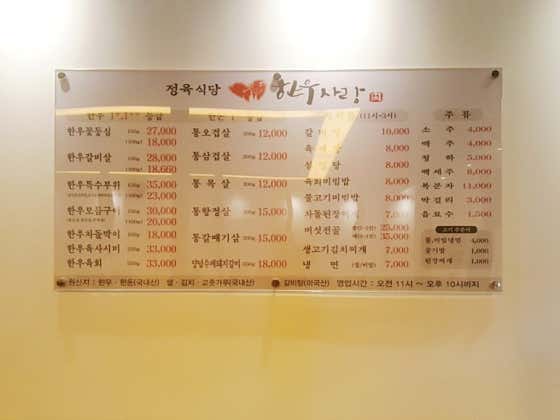 정육식당 한우사랑
주 류
한우꽃등심 150g 27,000
18,000
한우갈비살 150g 28,000
18,660
한우특수부위 150g 35,000
23,000
한우모듬구이 30,000
20,000
한우차돌박이 150g 18,000
한우육사시미 33,000
한우육회 33,000
통오겹살 200g 12,000
통삼겹살 200g 12,000
통 목 살 200g 12,000
통항정살 15,000
통갈매기살 15,000
양념수제돼지갈비 18,000
10,000
8,000
8,000
육회비빔밥 8,000
불고기비빔밥 8,000
차돌된장찌개 7,000
버섯전골 25,000
35,000
생고기김치찌개 7,000
냉 면 (물/비빔) 7,000
소 주 4,000
맥 주 4,000
청 하 5,000
백세주 6,000
복분자 11,000
막걸리 3,000
음료수 1,500
물,비빔냉면 4,000
공기밥 1,000
된장찌개 1,000
원산지 : 한우 · 한돈(국내산) 쌀 · 김치 · 고춧가루(국내산) 갈비탕(미국산) 영업시간 : 오전 11시 ~ 오후 10시까지